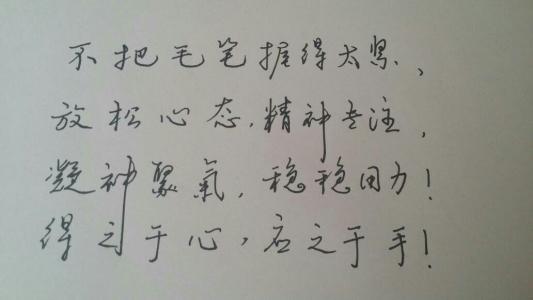 不把毛笔握得太紧、
放松心态,精神专注,
凝神聚氣,稳稳用力!
得之于心,应之于手!